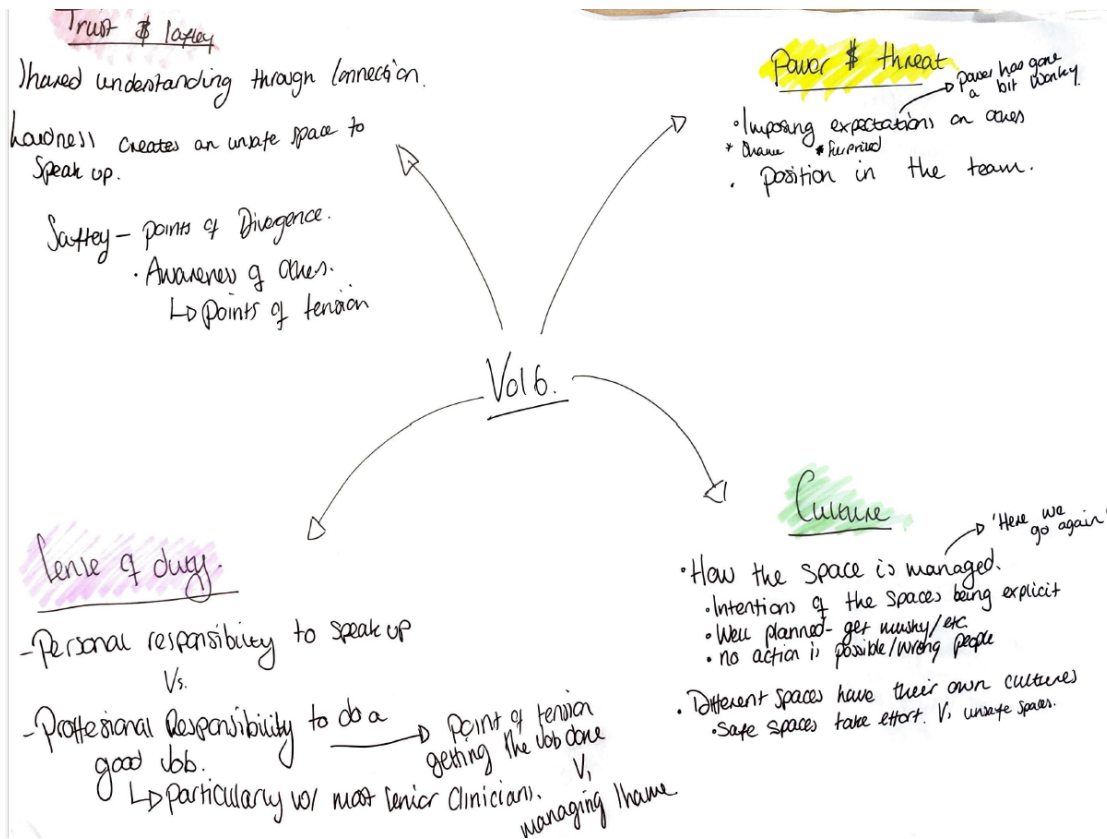 Trust & Saftey
Shared understanding through Connection.
Loudness creates an unsafe space to
speak up.
Saftey - points of Divergence.
· Awareness of others.
↳ points of tension
Power & threat
power has gone
a bit wonky.
· Imposing expectations on others
* Shame * Surprised
· position in the team.
Vol 6.
Sense of duty.
- Personal responsibility to speak up
Vs.
- Proffesional Responsibility to do a
good Job.
↳ particularly w/ most Senior Clinicians.
point of tension
getting the Job done
Vs
managing Shame
Culture
'Here we
go again'
· How the space is managed.
· Intentions of the spaces being explicit
· Well planned - get mushy/etc.
· no action is possible/wrong people
· Different spaces have their own cultures
· Safe spaces take effort. Vs unsafe spaces.